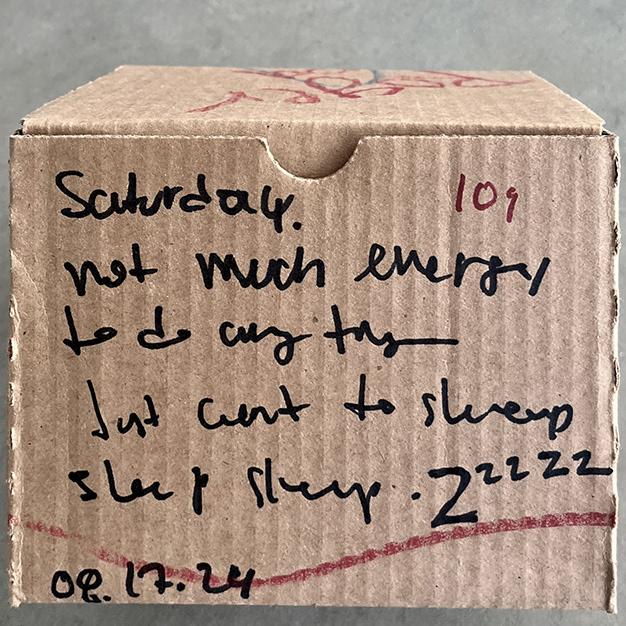 Saturday. 109
not much energy
to do any thing
Just want to sleep
sleep sleep. Zzzzz
08.17.24